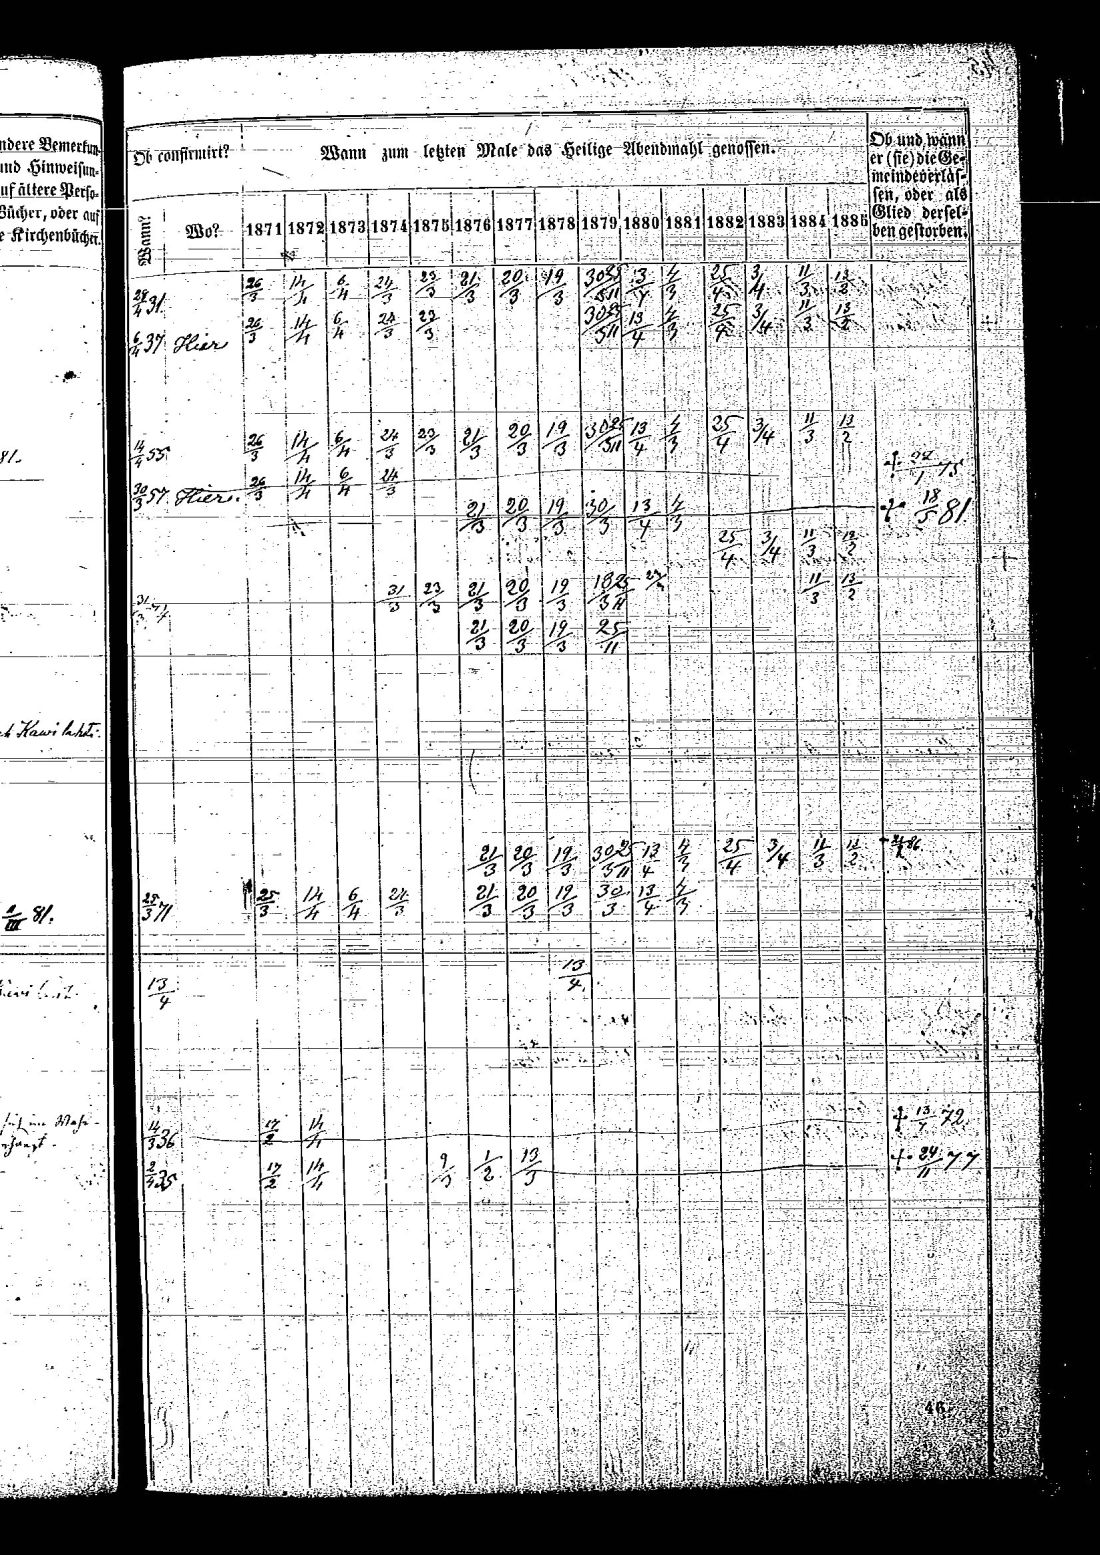 ndere Bemerkun-
und Hinweisun-
uf ältere Perso-
Bücher, oder auf
e Kirchenbücher.
Ob confirmirt?
Wann zum letzten Male das Heilige Abendmahl genossen.
Ob und wann
er (sie) die Ge-
meinde verlas-
sen, oder als
Glied dersel-
ben gestorben.
Wann? Wo? 1871 1872 1873 1874 1875 1876 1877 1878 1879 1880 1881 1882 1883 1884 1885
29/4 31. 26/3 14/4 6/4 24/3 23/3 21/3 20/3 19/3 30/3 25/11 13/4 4/3 25/4 3/4 11/3 13/2
6/4 37 Hier 26/3 14/4 6/4 24/3 23/3 30/3 25/11 13/4 4/3 25/4 3/4 11/3 13/2
81. 14/4 55 26/3 14/4 6/4 24/3 23/3 21/3 20/3 19/3 30/3 25/11 13/4 4/3 25/4 3/4 11/3 13/2
30/3 57. Hier. 26/3 14/4 6/4 24/3 † 75
21/3 20/3 19/3 30/3 13/4 4/3 † 18/5 81
25/4 3/4 11/3 13/2
31/3 23/3 21/3 20/3 19/3 18/3 25/11 11/3 13/2
21/3 20/3 19/3 25/11
Kawilahti.
21/3 20/3 19/3 30/3 25/11 13/4 4/3 25/4 3/4 11/3 13/2 86
III 81. 28/3 71 25/3 14/4 6/4 24/3 21/3 20/3 19/3 30/3 13/4 4/3
13/4 13/4
14/3 36 17/2 14/4 † 13/7 72
2/4 35 17/2 14/4 9/3 1/2 13/3 † 24/11 77
46.